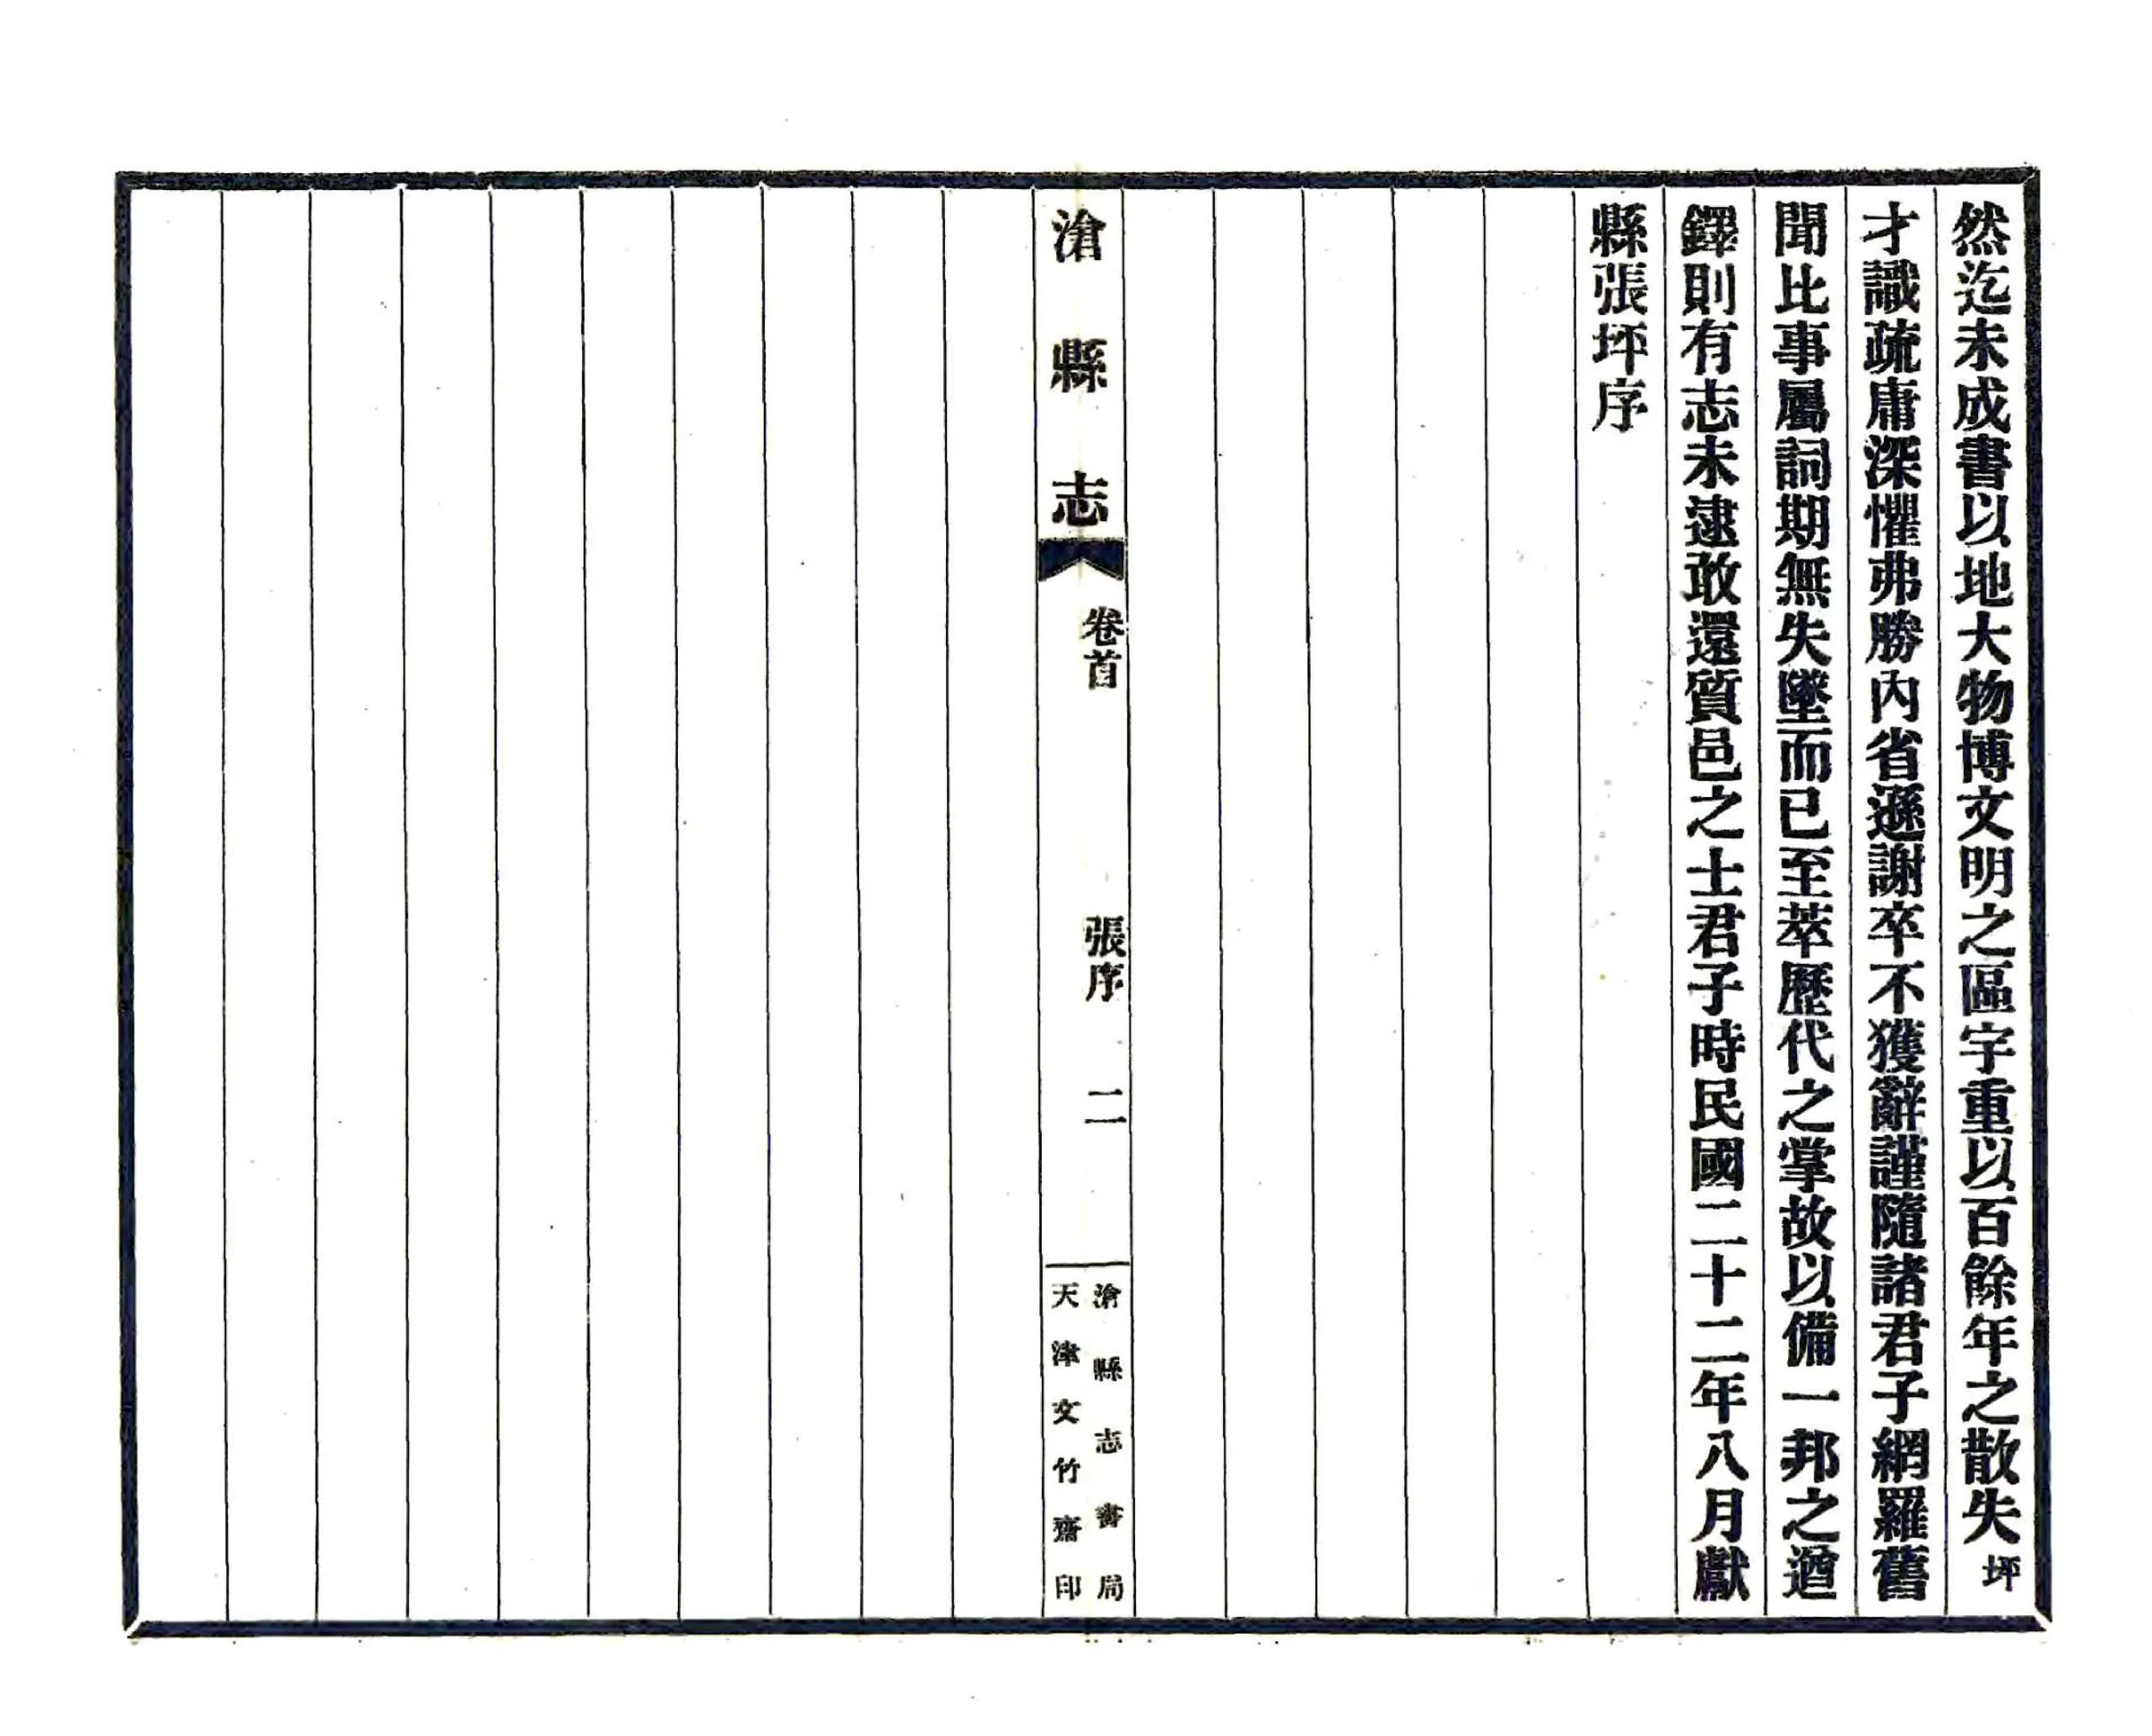 然迄未成書以地大物博文明之區字重以百餘年之散失坪
才識疏庸深懼弗勝內省遜謝卒不獲辭謹隨諸君子網羅舊
聞比事屬詞期無失墜而已至萃歷代之掌故以備一邦之遒
鐸則有志未逮敢還質邑之士君子時民國二十二年八月獻
縣張坪序
滄縣志
卷首
張序
二
滄縣志書局
天津文竹齋印